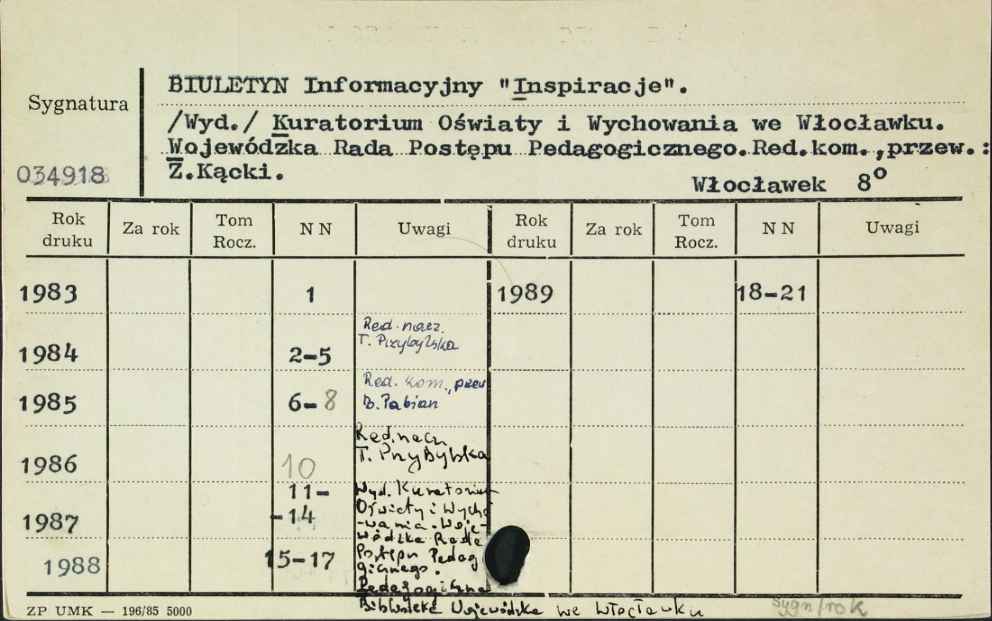 BIULETYN Informacyjny "Inspiracje".
Sygnatura
/Wyd./ Kuratorium Oświaty i Wychowania we Włocławku.
Wojewódzka Rada Postępu Pedagogicznego.Red.kom.,przew.:
034918
Z.Kącki.
Włocławek 8°
Rok druku Za rok Tom Rocz. N N Uwagi Rok druku Za rok Tom Rocz. N N Uwagi
1983 1 1989 18-21
Red. nacz.
T. Przybylska
1984 2-5
Red. kom., przew
1985 6-8 B. Pabian
Red. nacz.
T. Przybylska
1986 10
11- Wyd. Kuratorium
Oświaty i Wycho
1987 -14 -wania. Woje-
wódzka Rada
1988 15-17 Postępu Pedag
gicznego.
Pedagogiczna
Biblioteka Wojewódzka we Włocławku
ZP UMK — 196/85 5000
sygn/rok